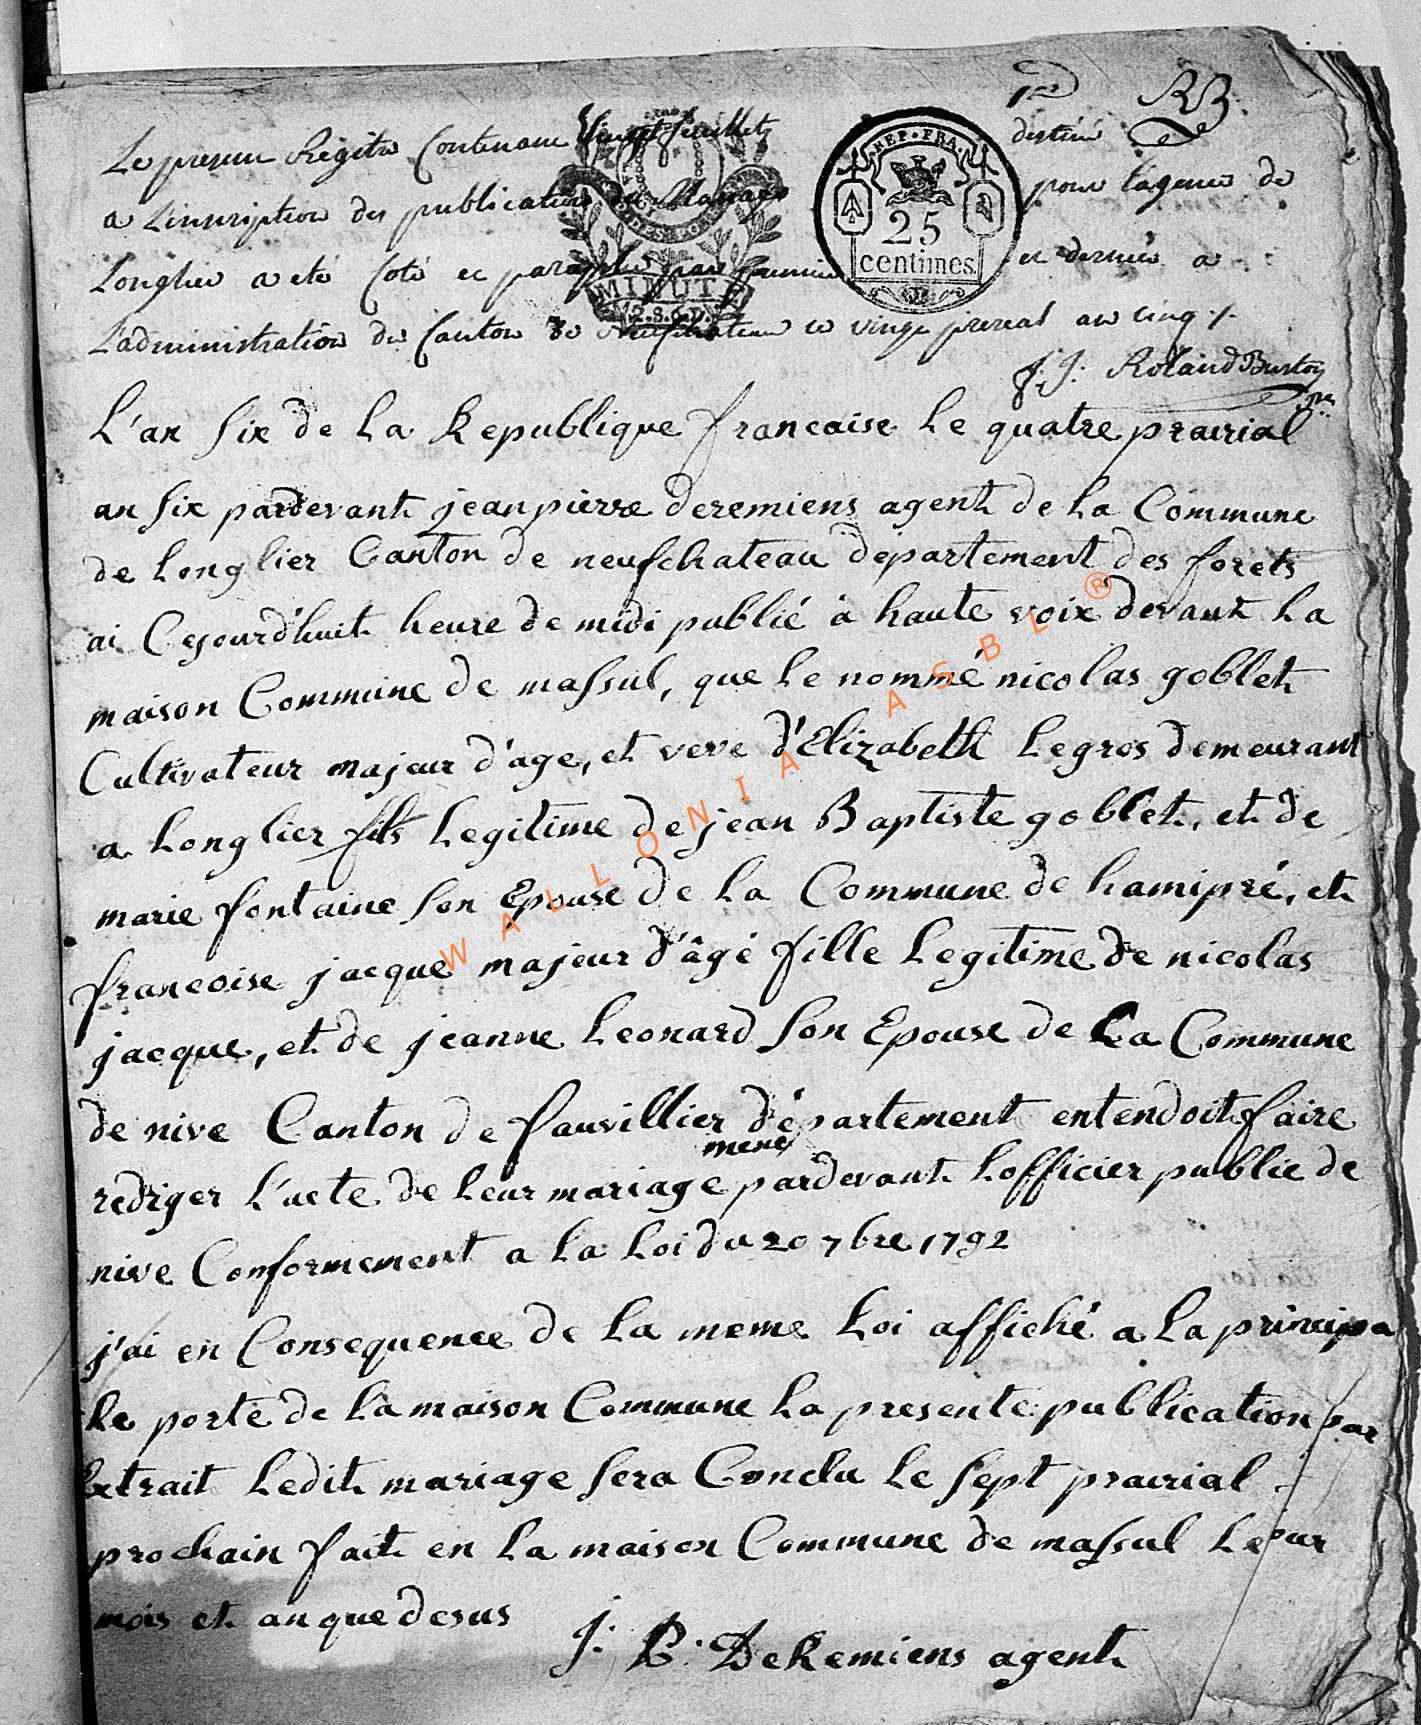 1er RB
Le present Registre Contenant Vingt feuillets destiné
a L'inscription des publications de Mariages pour l'agence de
Longlier a eté Coté et paraphé par premier et dernier a
L'administration du Canton de Neufchateau ce vingt prereal an cinq /.
J. J. Roland Burton
REP. FRA.
25
centimes.
MINUTE
L'an Six de La Republique francaise Le quatre prairial
an Six pardevant jean pierre deremiens agent de La Commune
de Longlier Canton de neufchateau département des forets
ai Cejourd'huit heure de midi publié à haute voix devant La
maison Commune de massul, que Le nommé nicolas goblet
Cultivateur majeur d'age, et veve d'Elizabeth Legros demeurant
a Longlier fils Legitime de jean Baptiste goblet, et de
marie fontaine Son Epouse de La Commune de hamipré, et
francoise jacque majeur d'âgé fille Legitime de nicolas
jacque, et de jeanne Leonard Son Epouse de La Commune
de nive Canton de fauvillier département entendoit faire
mene
rediger L'acte de Leur mariage pardevant Lofficier publie de
nive Conformement a La Loi du 20 7bre 1792
j'ai en Consequence de La meme Loi affiché a La principa
Le porte de La maison Commune La presente publication par
Extrait Ledit mariage Sera Conclu Le Sept prairial
prochain fait en La maison Commune de massul Le jur
mois et an que desus
J: P: DeRemiens agent
WALLONIA ASBL ®